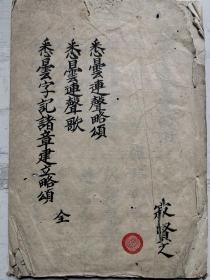 悉曇連聲略頌
悉曇連聲歌
悉曇字記諸章建立略頌 全
嚴賢之